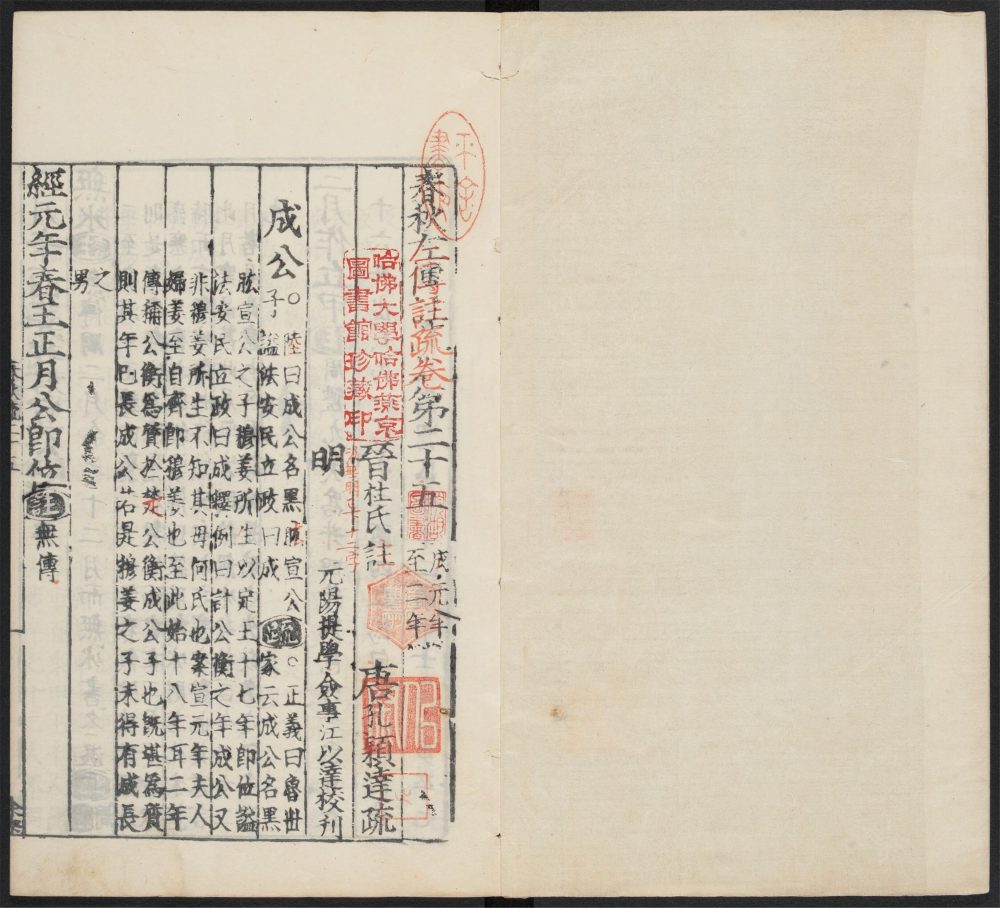 春秋左傳註疏卷第二十五
成元年
至二年
哈佛大學哈佛燕京
圖書館珍藏印
晉杜氏註 唐孔穎達疏
明 元陽提學僉事江以達校刊
成公
○陸曰成公名黑肱宣公
子謚法安民立政曰成
疏
○正義曰魯世
家云成公名黑
肱宣公之子穆姜所生以定王十七年即位謚
法安民立政曰成釋例曰計公衡之年成公又
非穆姜所生不知其母何氏也案宣元年夫人
婦姜至自齊即穆姜也至此始十八年耳二年
傳稱公衡爲質於楚公衡成公子也既堪爲質
則其年已長成公若是穆姜之子未得有成長
之
男
經元年春王正月公即位 無傳